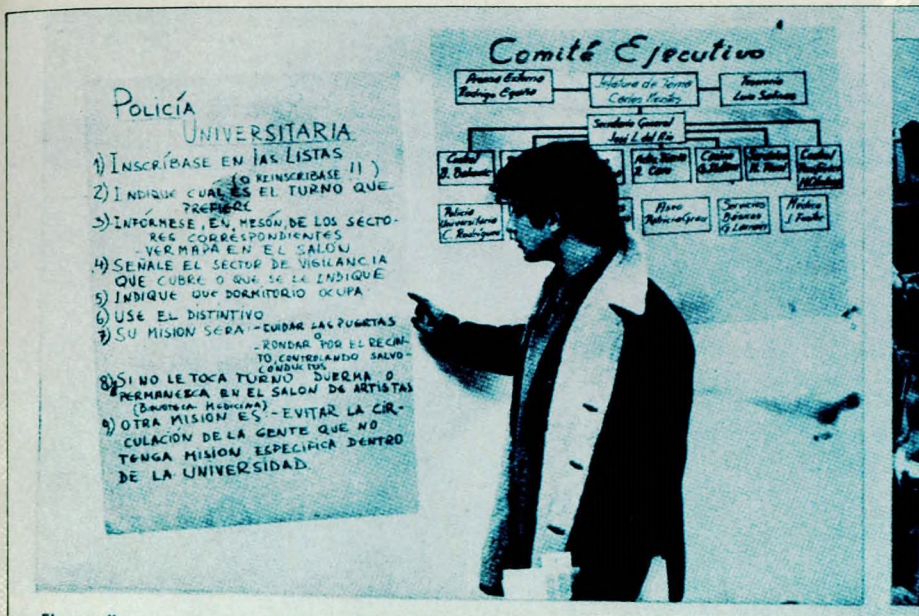 POLICÍA
UNIVERSITARIA
1) INSCRÍBASE EN LAS LISTAS
(O REINSCRIBASE !!)
2) INDIQUE CUAL ES EL TURNO QUE
PREFIERE
3) INFÓRMESE, EN, MESÓN, DE LOS SECTO-
RES CORRESPONDIENTES
- VER MAPA EN EL SALÓN
4) SEÑALE EL SECTOR DE VIGILANCIA
QUE CUBRE O QUE SE LE INDIQUE
5) INDIQUE QUE DORMITORIO OCUPA
6) USE EL DISTINTIVO
7) SU MISION SERA - CUIDAR LAS PUERTAS
O
- RONDAR POR EL RECIN-
TO, CONTROLANDO SALVO-
CONDUCTOS
8) SI NO LE TOCA TURNO DUERMA O
PERMANESCA EN EL SALON DE ARTISTAS
(BIBLIOTECA MEDICINA)
9) OTRA MISION ES - EVITAR LA CIR-
CULACIÓN DE LA GENTE QUE NO
TENGA MISION ESPECIFICA DENTRO
DE LA UNIVERSIDAD
Comité Ejecutivo
Prensa Externa
Rodrigo Egaña
Jefatura de Toma
Carlos Montes
Tesorería
Luis Salinas
Secretario General
José L. del Río
Control
R. Caro
Control
Policía
Universitaria
C. Rodríguez
Aseo
Patricio Grau
Servicios
Básicos
G. Larraín
Médico
J. Foster